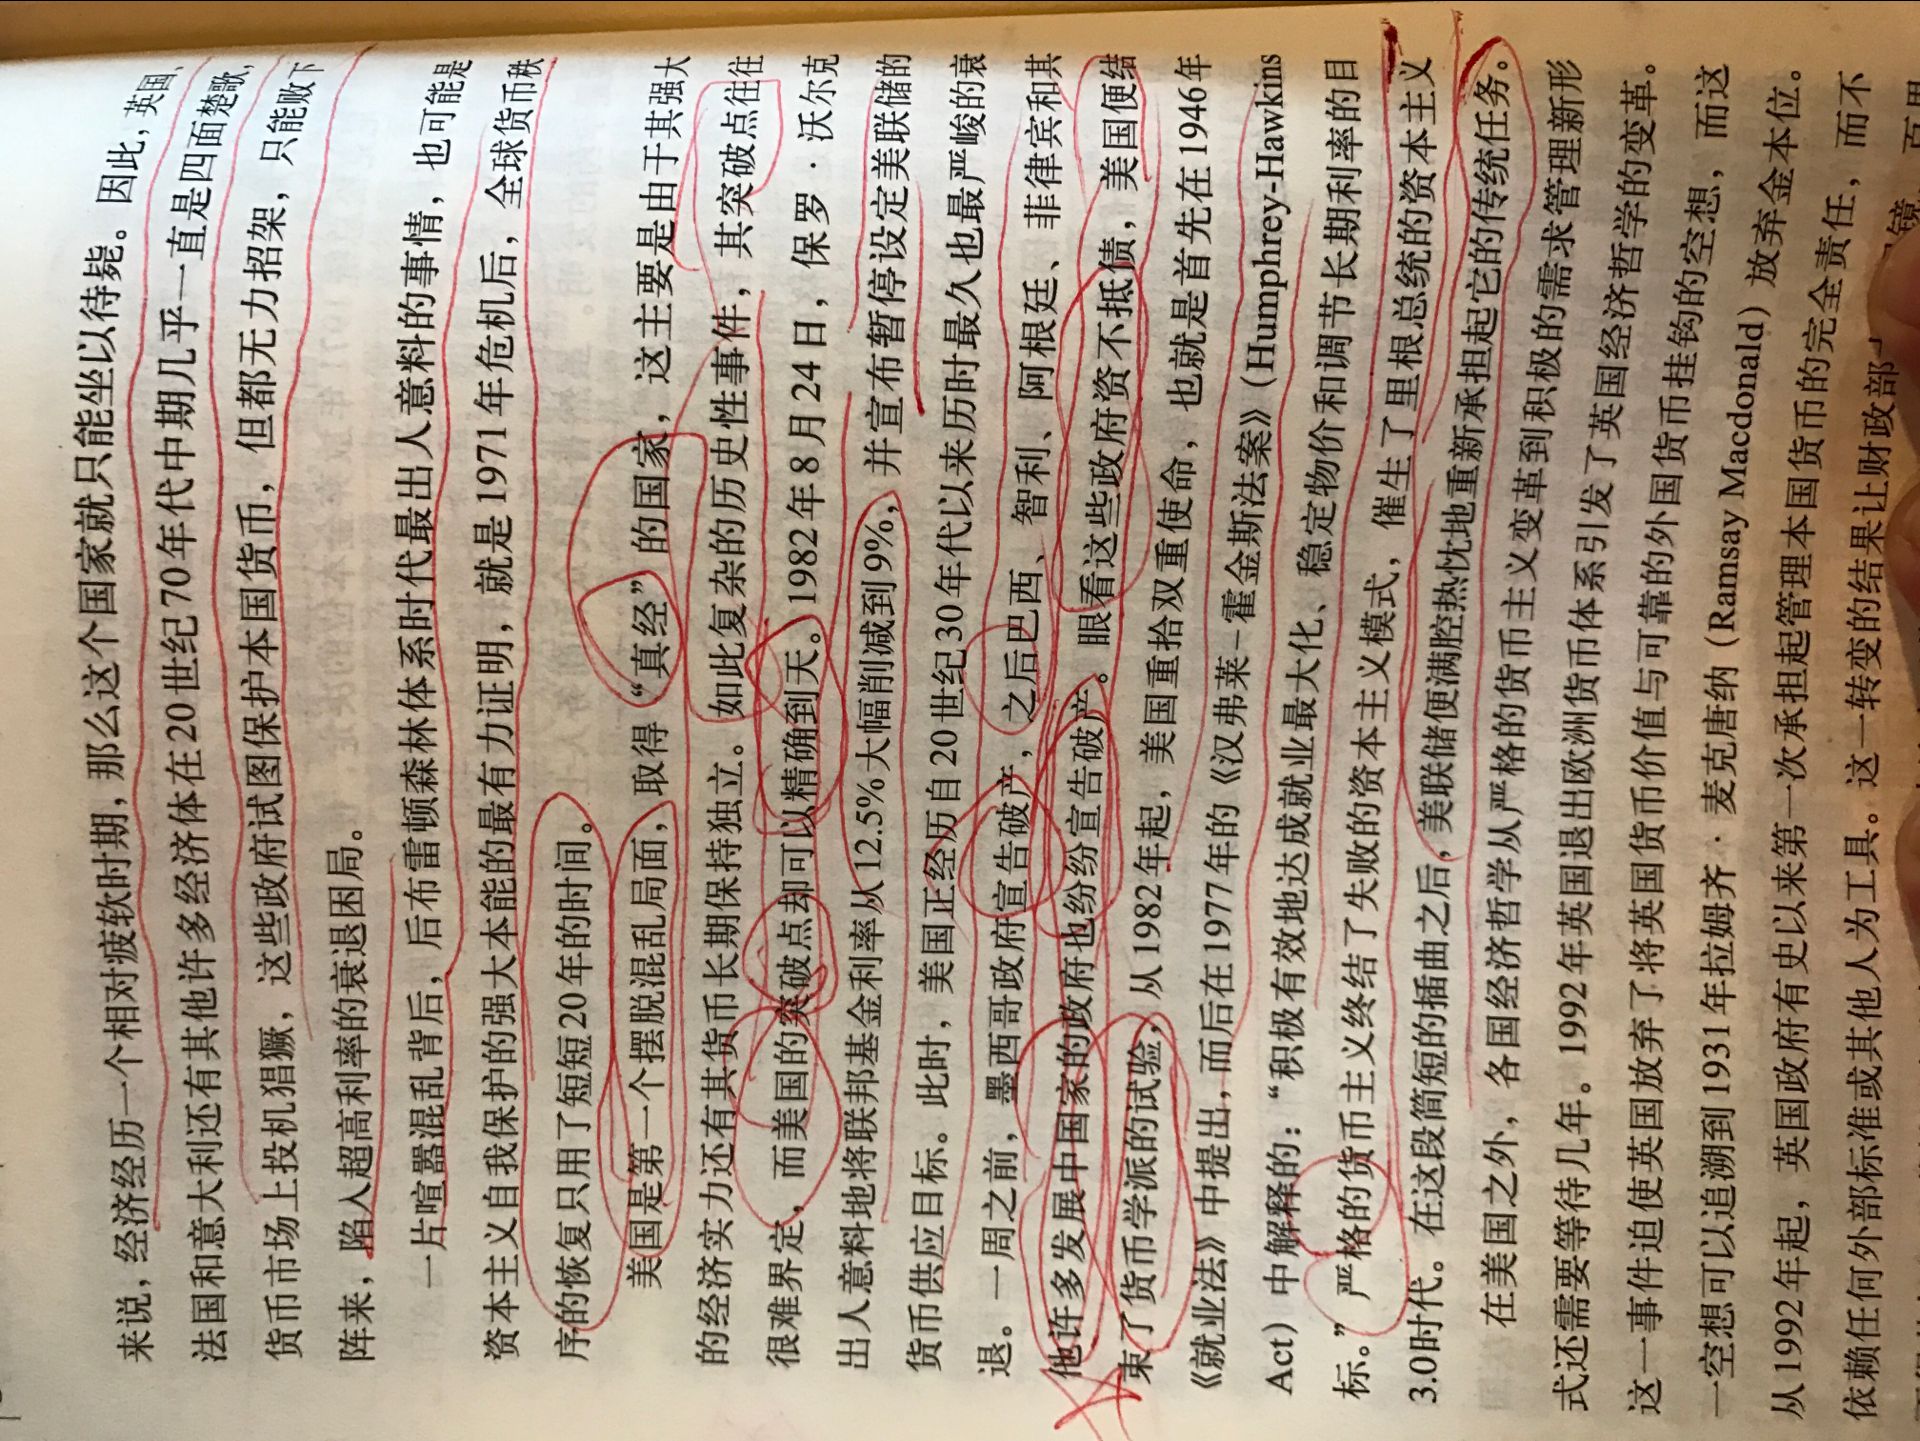 来说，经济经历一个相对疲软时期，那么这个国家就只能坐以待毙。因此，英国、
法国和意大利还有其他许多经济体在20世纪70年代中期几乎一直是四面楚歌，
货币市场上投机猖獗，这些政府试图保护本国货币，但都无力招架，只能败下
阵来，陷入超高利率的衰退困局。
一片喧嚣混乱背后，后布雷顿森林体系时代最出人意料的事情，也可能是
资本主义自我保护的强大本能的最有力证明，就是1971年危机后，全球货币秩
序的恢复只用了短短20年的时间。
美国是第一个摆脱混乱局面，取得“真经”的国家，这主要是由于其强大
的经济实力还有其货币长期保持独立。如此复杂的历史性事件，其突破点往往
很难界定，而美国的突破点却可以精确到天。1982年8月24日，保罗·沃尔克
出人意料地将联邦基金利率从12.5%大幅削减到9%，并宣布暂停设定美联储的
货币供应目标。此时，美国正经历自20世纪30年代以来历时最久也最严峻的衰
退。一周之前，墨西哥政府宣告破产，之后巴西、智利、阿根廷、菲律宾和其
他许多发展中国家的政府也纷纷宣告破产。眼看这些政府资不抵债，美国便结
束了货币学派的试验，从1982年起，美国重拾双重使命，也就是首先在1946年
《就业法》中提出，而后在1977年的《汉弗莱－霍金斯法案》（Humphrey-Hawkins
Act）中解释的：“积极有效地达成就业最大化、稳定物价和调节长期利率的目
标。”严格的货币主义终结了失败的资本主义模式，催生了里根总统的资本主义
3.0时代。在这段简短的插曲之后，美联储便满腔热忱地重新承担起它的传统任务。
在美国之外，各国经济哲学从严格的货币主义变革到积极的需求管理新形
式还需要等待几年。1992年英国退出欧洲货币体系引发了英国经济哲学的变革。
这一事件迫使英国放弃了将英国货币价值与可靠的外国货币挂钩的空想，而这
一空想可以追溯到1931年拉姆齐·麦克唐纳（Ramsay Macdonald）放弃金本位。
从1992年起，英国政府有史以来第一次承担起管理本国货币的完全责任，而不
依赖任何外部标准或其他人为工具。这一转变的结果让财政部